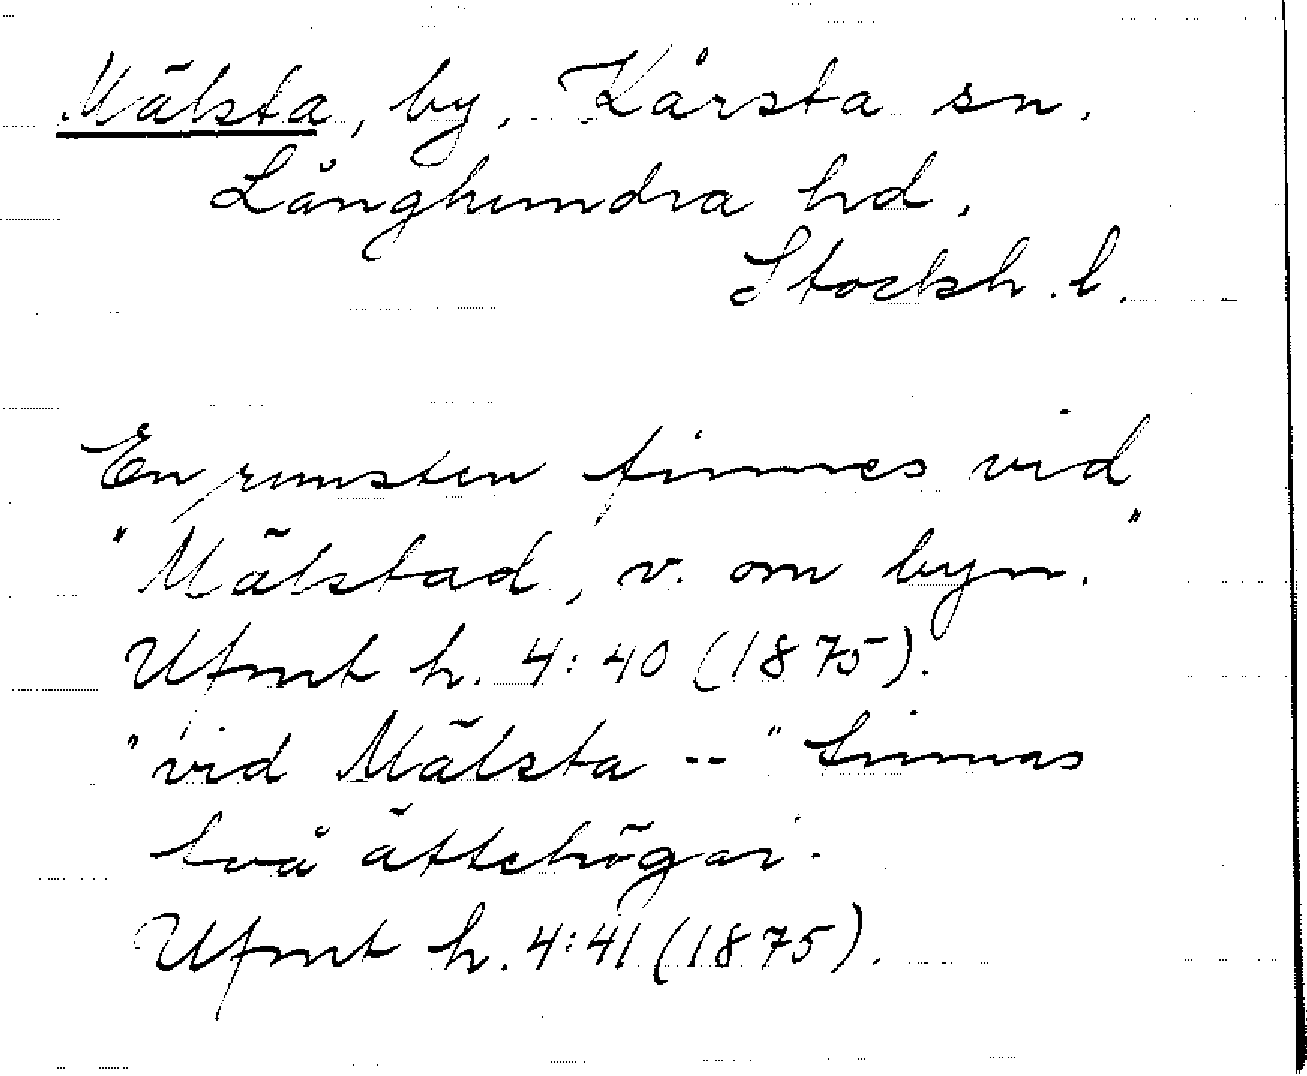 Mälsta, by, Kårsta sn.
Långhundra hd,
Stockh. l.
En runsten finnes vid
"Mälstad, v. om byn."
Ufmt h. 4:40 (1875).
"vid Mälsta --" finnas
två ättehögar.
Ufmt h. 4:41 (1875).